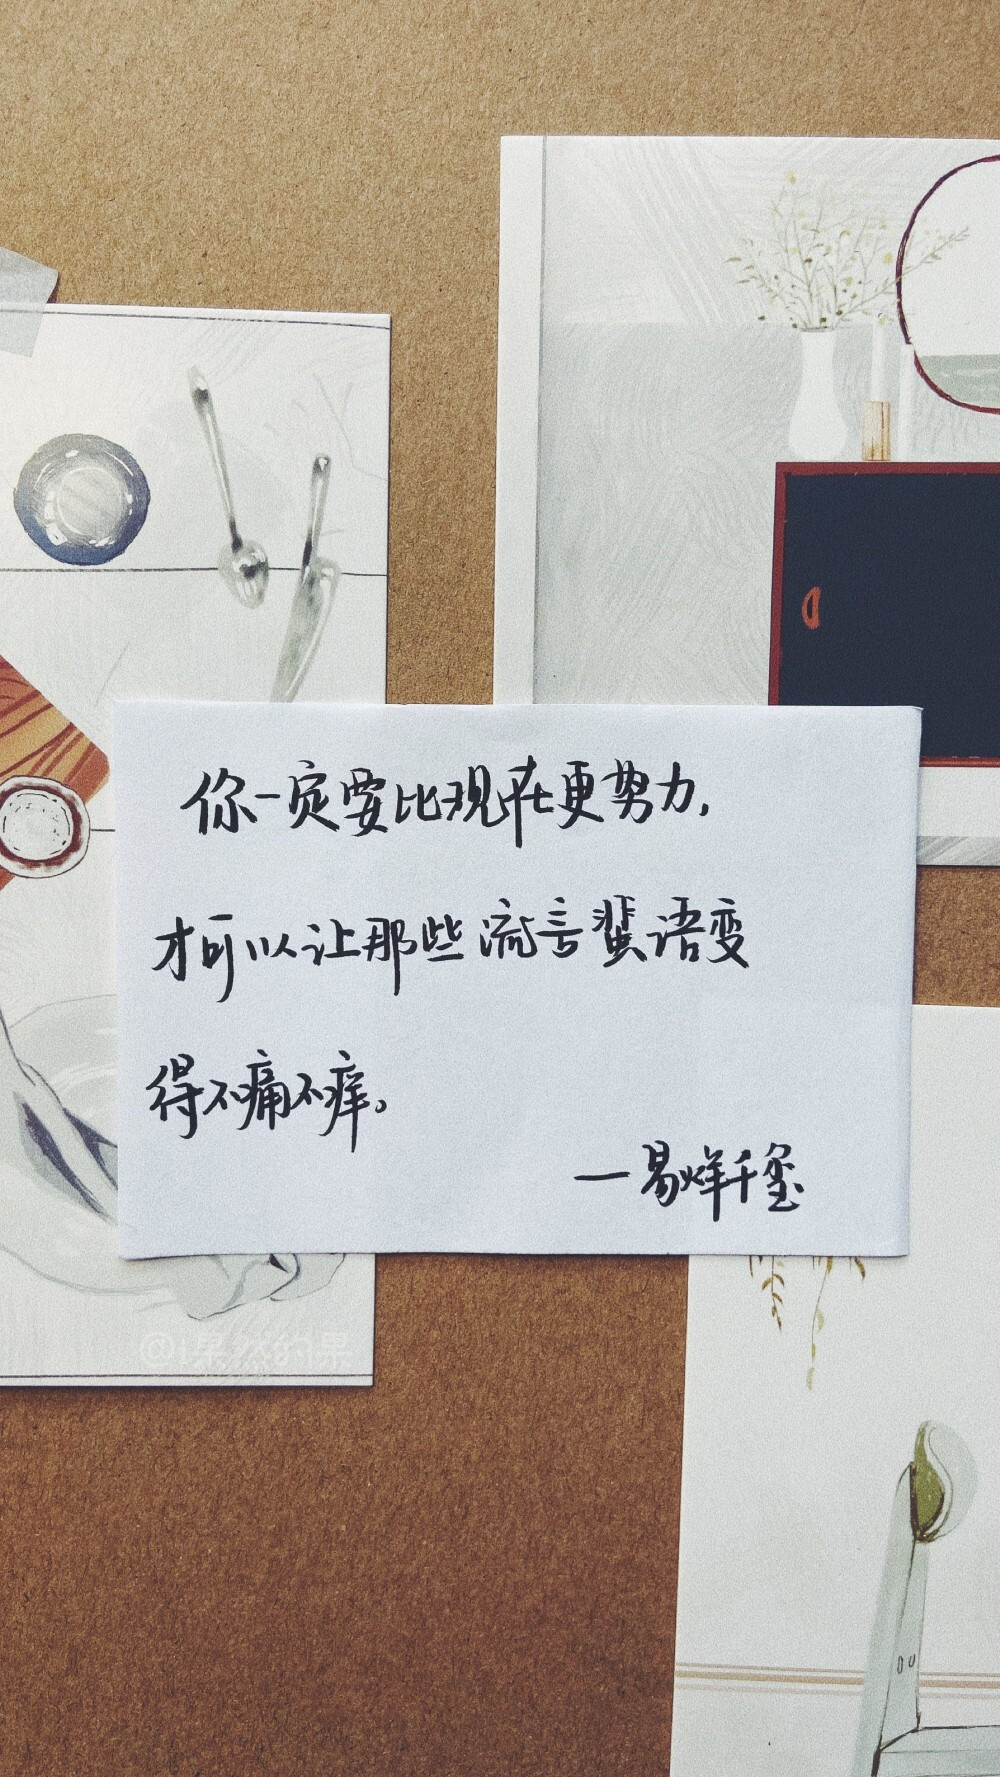 你一定要比现在更努力,
才可以让那些流言蜚语变
得不痛不痒。
—易烊千玺
@i果然的果